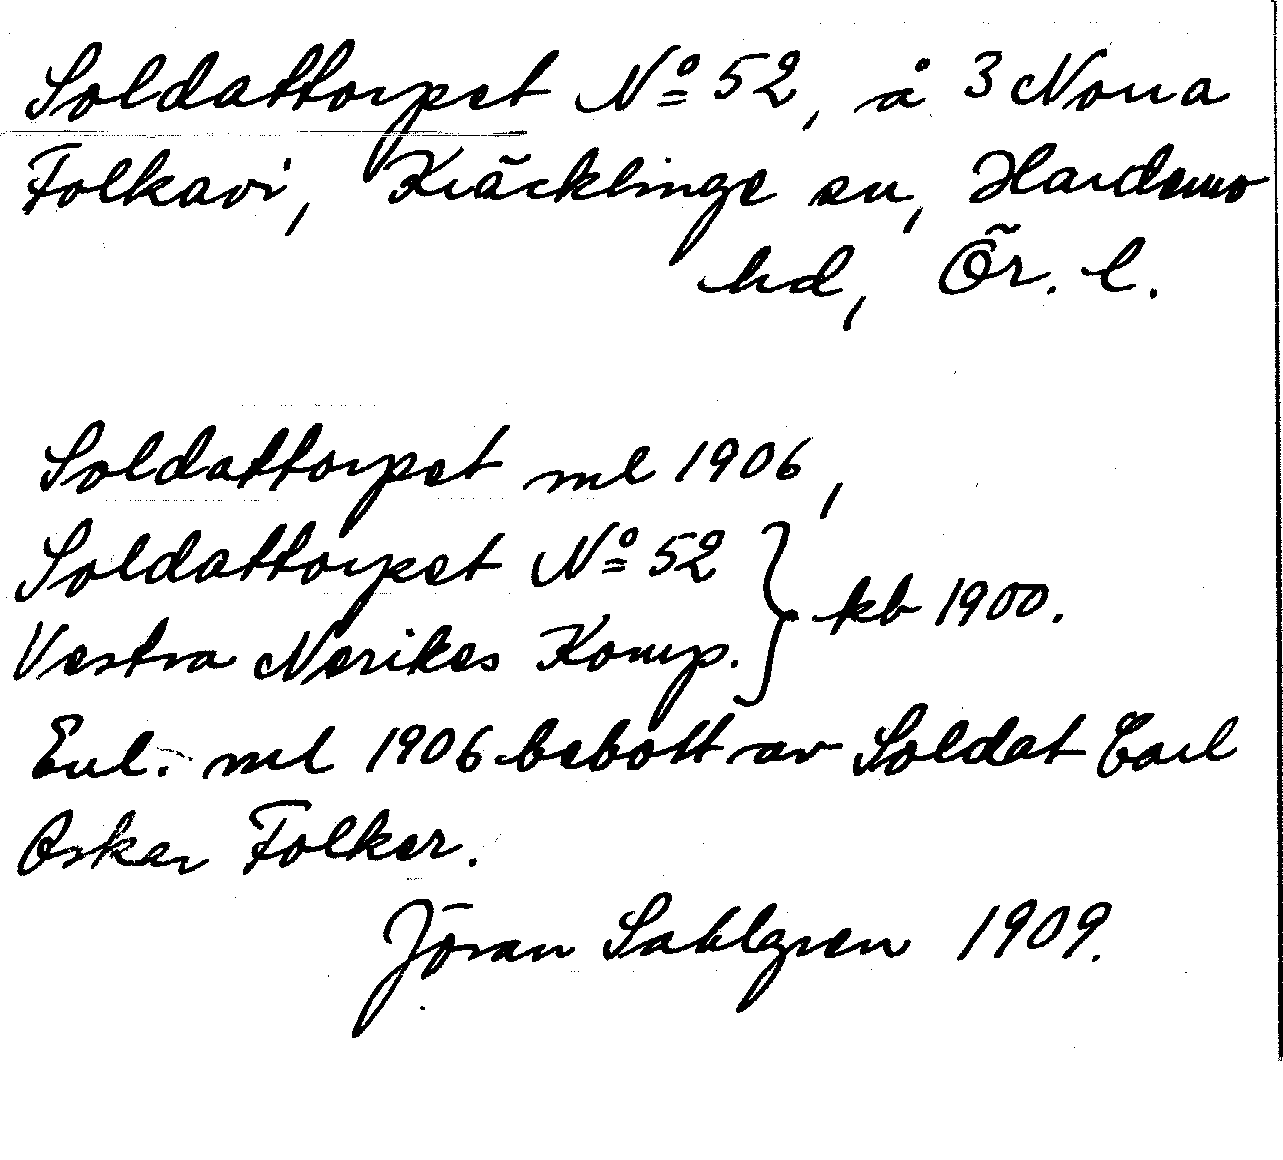 Soldattorpet Nº 52, å 3 Norra
Folkavi, Kräcklinge sn, Hardemo
hd, Ör. l.
Soldattorpet ml 1906,
Soldattorpet Nº 52
Vestra Nerikes Komp. } kb 1900.
Enl. ml 1906 bebott av Soldat Carl
Oskar Folker.
Jöran Sahlgren 1909.